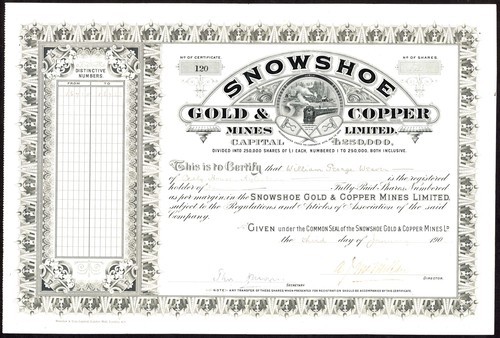 No. OF CERTIFICATE.
No. OF SHARES.
120
DISTINCTIVE
NUMBERS.
FROM TO
SNOWSHOE
GOLD & COPPER
MINES LIMITED.
CAPITAL £250,000,
DIVIDED INTO 250,000 SHARES OF £1 EACH, NUMBERED 1 TO 250,000, BOTH INCLUSIVE.
This is to Certify that William George
of is the registered
holder of Fully Paid Shares, Numbered
as per margin, in the SNOWSHOE GOLD & COPPER MINES LIMITED.
subject to the Regulations and Articles of Association of the said
Company.
GIVEN under the COMMON SEAL of the SNOWSHOE GOLD & COPPER MINES LD
the third day of 190
DIRECTOR
SECRETARY
NOTE:—ANY TRANSFER OF THESE SHARES WHEN PRESENTED FOR REGISTRATION SHOULD BE ACCOMPANIED BY THIS CERTIFICATE.